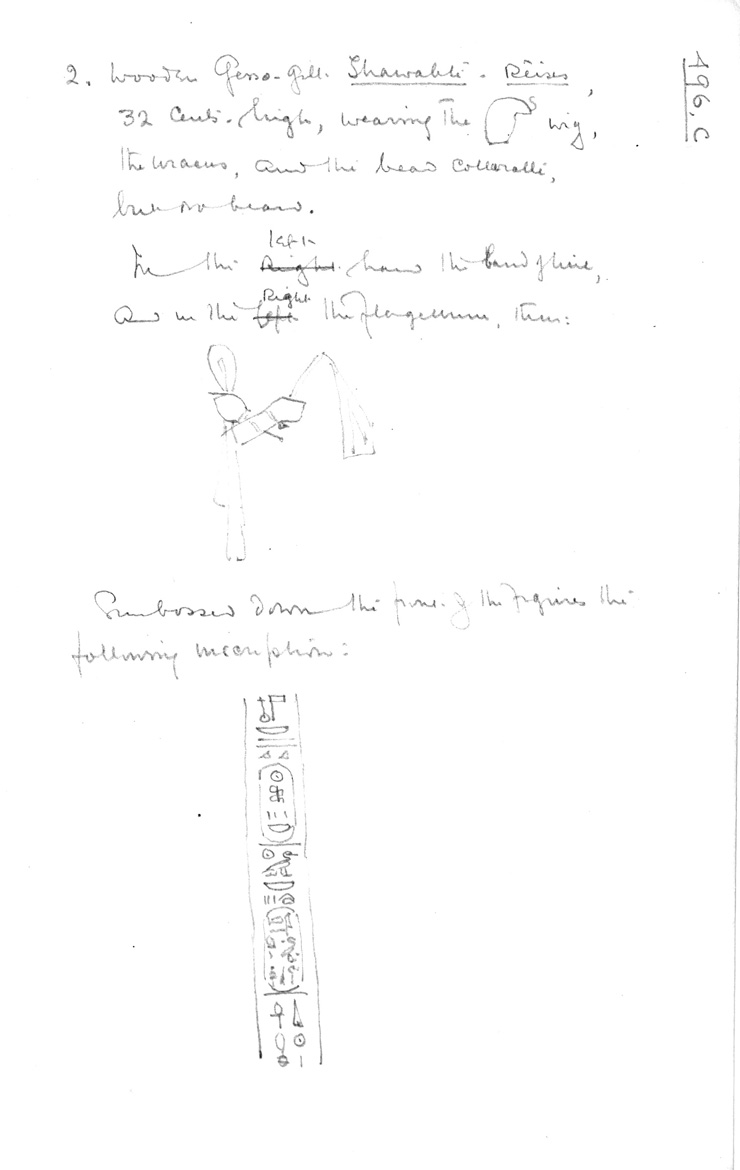 496.C
2. Wooden Gesso-gilt Shawabti - Reises,
32 cents. high, wearing the wig,
the uraeus, and the bead collarette,
but no beard.
In the left Right hand the band
and in the Right left the flagellum, thus:
Embossed down the front of the figures the
following inscription: